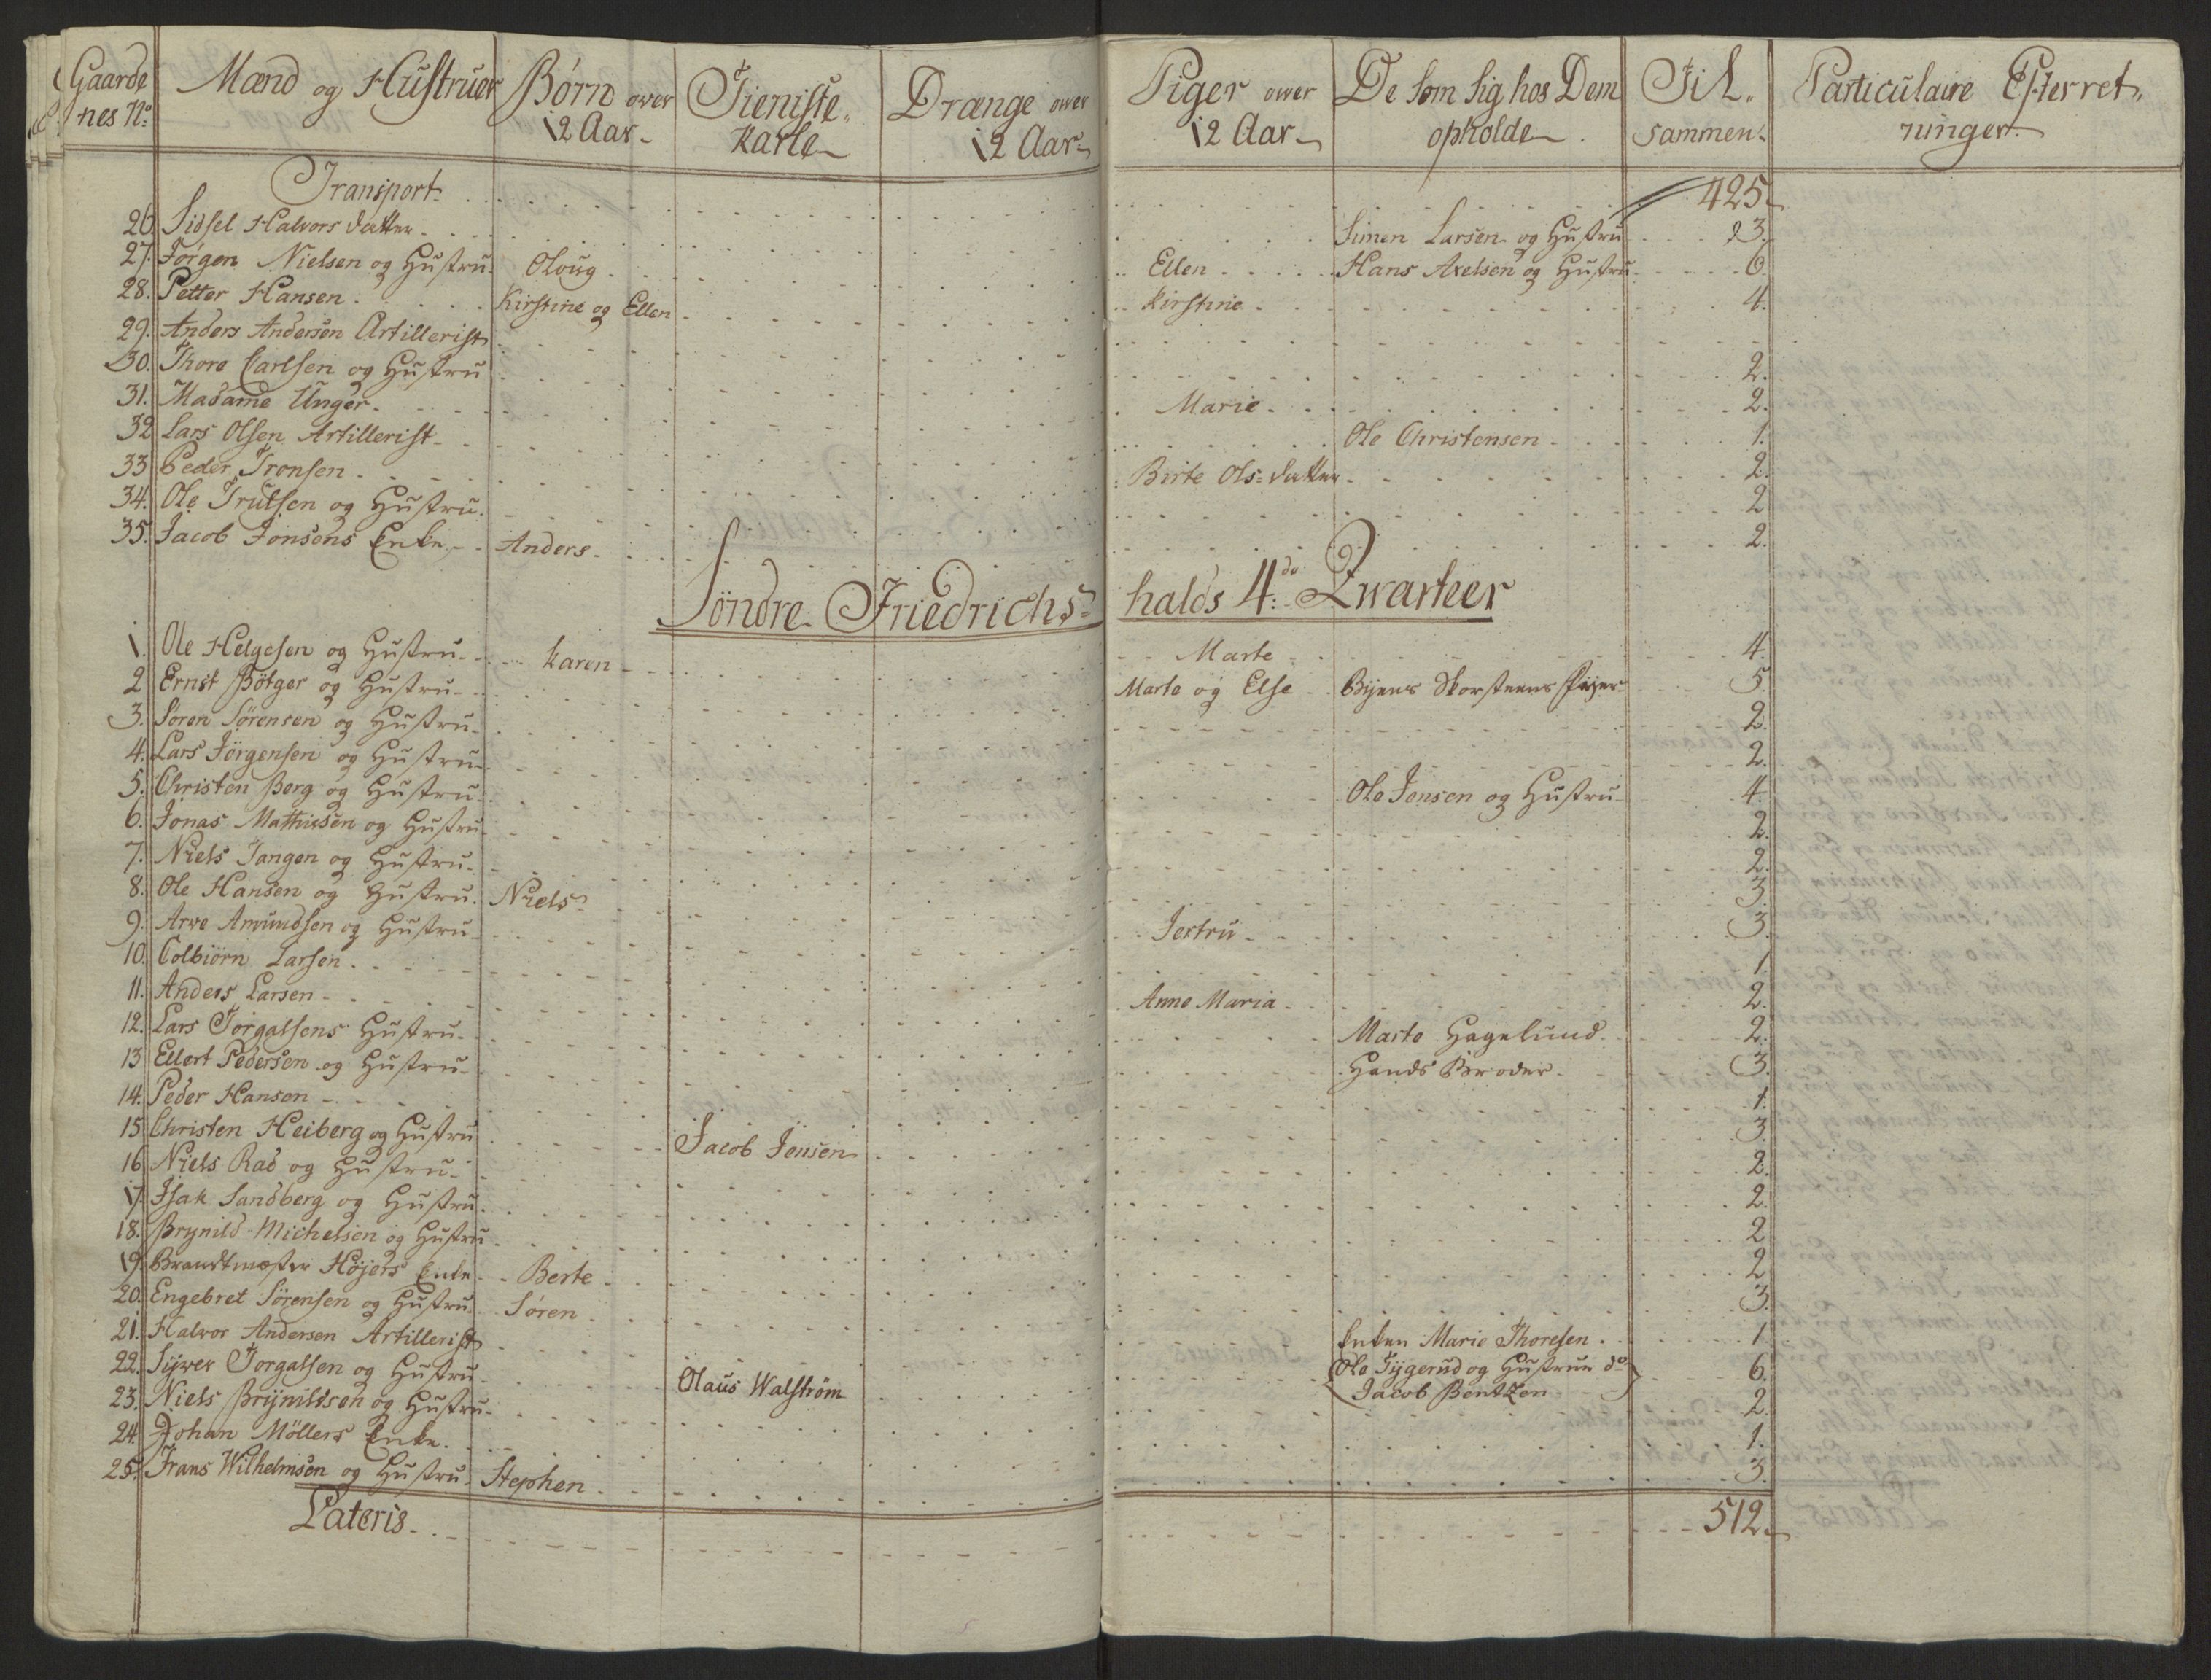 Gaarde nes No | Mænd og Hustruer | Børn over 12 Aar | Tieniste Karle | Drænge over 12 Aar | Piger over 12 Aar | De som sig hos Dem opholde | Til sammen | Particulaire Efterretninger
Transport 425
26. Sidsel Halvors datter | Simen Larsen og Hustru | 3.
27. Jørgen Nielsen og Hustru | Oloug | Ellen | Hans Axelsen og Hustru | 6
28. Petter Hansen | Kirstine og Ellen | Kirstine | 4.
29. Anders Andersen Artillerist
30. Thore Carlsen og Hustru | 2.
31. Madame Unger | Marie | 2.
32 Lars Olsen Artillerist | Ole Christensen | 1.
33 Peder Tronsen | Birte Ols=datter | 2.
34. Ole Trulsen og Hustru | 2
35. Jacob Jonsens Enke | Anders | 2.
Söndre Friedrichs=halds 4de Qwarteer
1. Ole Helgesen og Hustru | Karen | Marte | 4.
2 Ernst Bötger og Hustru | Marte og Else | Byens Skorsteens Fejer | 5.
3. Søren Sørensen og Hustru | 2.
4. Lars Jörgensen og Hustru | 2.
5. Christen Berg og Hustru | Ole Jensen og Hustru | 4.
6. Jonas Mathiesen og Hustru | 2.
7. Niels Tangen og Hustru | 2.
8. Ole Hansen og Hustru | Niels | 3
9. Arve Amundsen og Hustru | Jertru | 3.
10. Colbiörn Larsen | 1.
11. Anders Larsen | Anne Maria | 2.
12. Lars Torgalsens Hustru | Marte Hagelund | 2.
13 Ellert Pedersen og Hustru | Hands Broder | 3.
14. Peder Hansen | 1.
15 Christen Heiberg og Hustru | Jacob Jensen | 3.
16 Niels Rad og Hustru | 2.
17. Isak Sandberg og Hustru | 2.
18. Brynild Michelsen og Hustru | 2
19. Brandtmester Højers Enke | Berte | 2
20. Engebret Sörensen og Hustru | Søren | 3.
21. Halvor Andersen Artillerist | Enken Marie Thoresen | 1.
22. Syver Torgalsen og Hustru | Olaus Walström | Ole Tygerud og Hustrue do Jacob Bentzen | 6.
23. Niels Brynildsen og Hustru | 2.
24. Johan Möllers Enke | 1.
25. Frans Wilhelmsen og Hustru | Stephen | 3.
Lateris 512